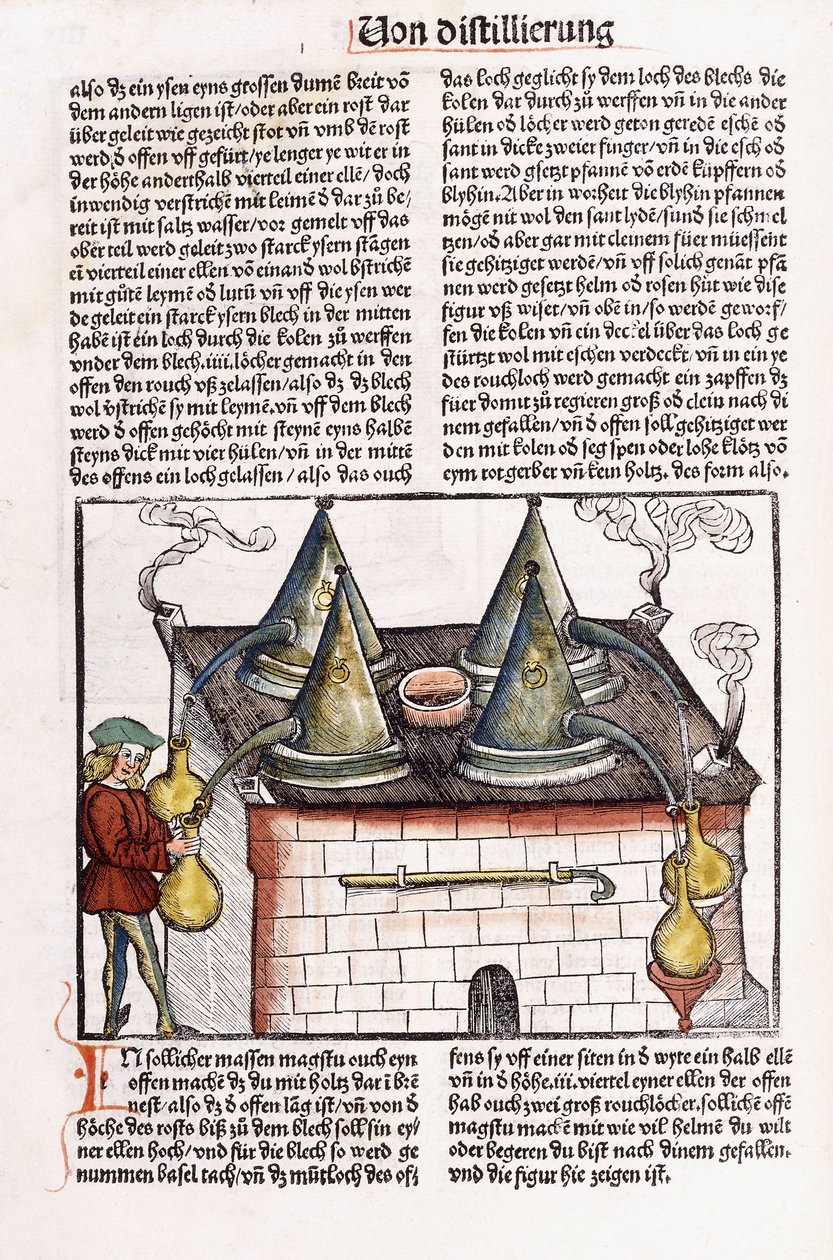 Von distillierung
also dz ein ysen eyns grossen dumē breit vō
dem andern ligen ist/oder aber ein rost dar
über geleit wie gezeicht stot vñ vmb dē rost
werd d̕ offen vff gefürt/ye lenger ye witer in
der höhe anderthalb vierteil einer ellē/doch
inwendig verstrichē mit leimē d̕ dar zů be/
reit ist mit saltz wasser/vor gemelt vff das
ober teil werd geleit zwo starck ysern stāgen
eī vierteil einer ellen vō einand̕ wol bstrichē
mit gůtē leymē od̕ lutū vñ vff die ysen wer
de geleit ein starck ysern blech in der mitten
habē ist ein loch durch die kolen zů werffen
vnder dem blech.iiii.löcher gemacht in den
offen den rouch vß zelassen/also dz dz blech
wol v̕strichē sy mit leymē.vñ vff dem blech
werd d̕ offen gehöcht mit steynē eyns halbē
steyns dick mit vier hülen/vñ in der mittē
des offens ein loch gelassen/also das ouch
das loch geglicht sy dem loch des blechs die
kolen dar durch zů werffen vñ in die ander
hülen od̕ löcher werd geton geredē eschē od̕
sant in dicke zweier finger/vñ in die esch od̕
sant werd gsetzt pfannē vō erdē küpffern od̕
blyhin.Aber in worheit die blyhin pfannen
mögē nit wol den sant lydē/sund̕ sie schmel
tzen/od̕ aber gar mit cleinem füer müessent
sie gehitziget werdē/vñ vff solich genāt pfā
nen werd gesetzt helm od̕ rosen hüt wie dise
figur vß wiset/vñ obē in/so werdē geworf/
fen die kolen vñ ein deckel über das loch ge
stürtzt wol mit eschen verdeckt/vñ in ein ye
des rouchloch werd gemacht ein zapffen dz
füer domit zů regieren groß od̕ clein nach di
nem gefallen/vñ d̕ offen soll gehitziget wer
den mit kolen od̕ seg spen oder lohe klötz vō
eym rotgerber vñ kein holtz. des form also.
IN sollicher massen magstu ouch eyn
offen machē dz du mit holtz dar ī brē
nest/also dz d̕ offen lāg ist/vñ von d̕
höche des rosts biß zů dem blech soll sin ey/
ner ellen hoch/vnd für die blech so werd ge
nummen basel tach/vñ dz mūtloch des of/
fens sy vff einer siten in d̕ wyte ein halb ellē
vñ in d̕ höhe.iii.viertel eyner ellen der offen
hab ouch zwei groß rouchlöcher.sollichē offē
magstu machē mit wie vil helmē du wilt
oder begeren du bist nach dinem gefallen.
vnd die figur hie zeigen ist.